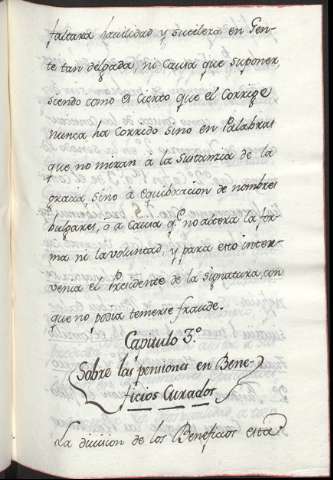 faltara havilidad y sutileza en Gen-
te tan delgada, ni Causa que suponer,
siendo como es Cierto que el Corrige
nunca ha Corrido sino en Palabras
que no miran à la sustanzia de la
gracia, sino à equibocacion de nombres
bulgares, o a Causa q.e no altera la for-
ma ni la voluntad, y para esto inter-
venia el Presidente de la signatura, con
que no podia temerse fraude.
Capitulo 3.º
Sobre las pensiones en Bene-
ficios Curados
La division de los Beneficios esta